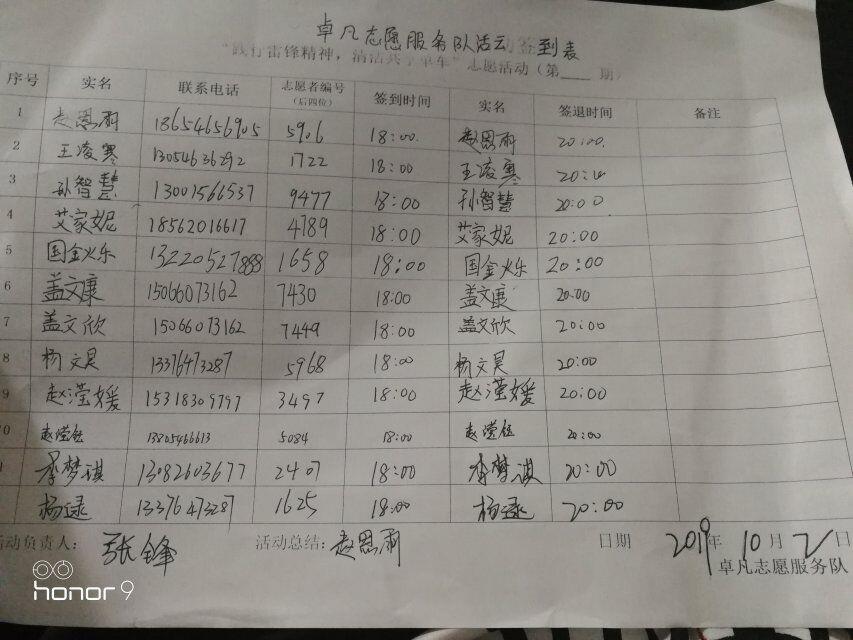 卓凡志愿服务队活动签到表
"践行雷锋精神，清洁共享单车"志愿活动（第____期）
序号 实名 联系电话 志愿者编号（后四位） 签到时间 实名 签退时间 备注
1 赵恩雨 18654656905 5906 18:00. 赵恩雨 20:00.
2 王凌寒 13054636292 1722 18:00 王凌寒
3 孙智慧 13001566537 9477 18:00 孙智慧 20:00
4 艾家妮 18562016617 4789 18:00 艾家妮 20:00
5 国金火乐 1658 18:00 国金火乐 20:00
6 盖文康 15066073162 7430 18:00 盖文康 20:00
7 盖文欣 15066073162 7449 18:00 盖文欣 20:00
8 杨文昊 13376473287 5968 18:00 杨文昊 20:00
9 赵滢媛 15318309797 3497 18:00 赵滢媛 20:00
0 赵滢钰 13805466613 5084 18:00 赵滢钰 20:00
李梦琪 13082603677 2407 18:00 李梦琪 20:00
杨逯 13376473287 1625 18:00 杨逯 20:00
活动负责人： 张锋 活动总结： 赵恩雨 日期 2019年10月2日
卓凡志愿服务队
honor 9